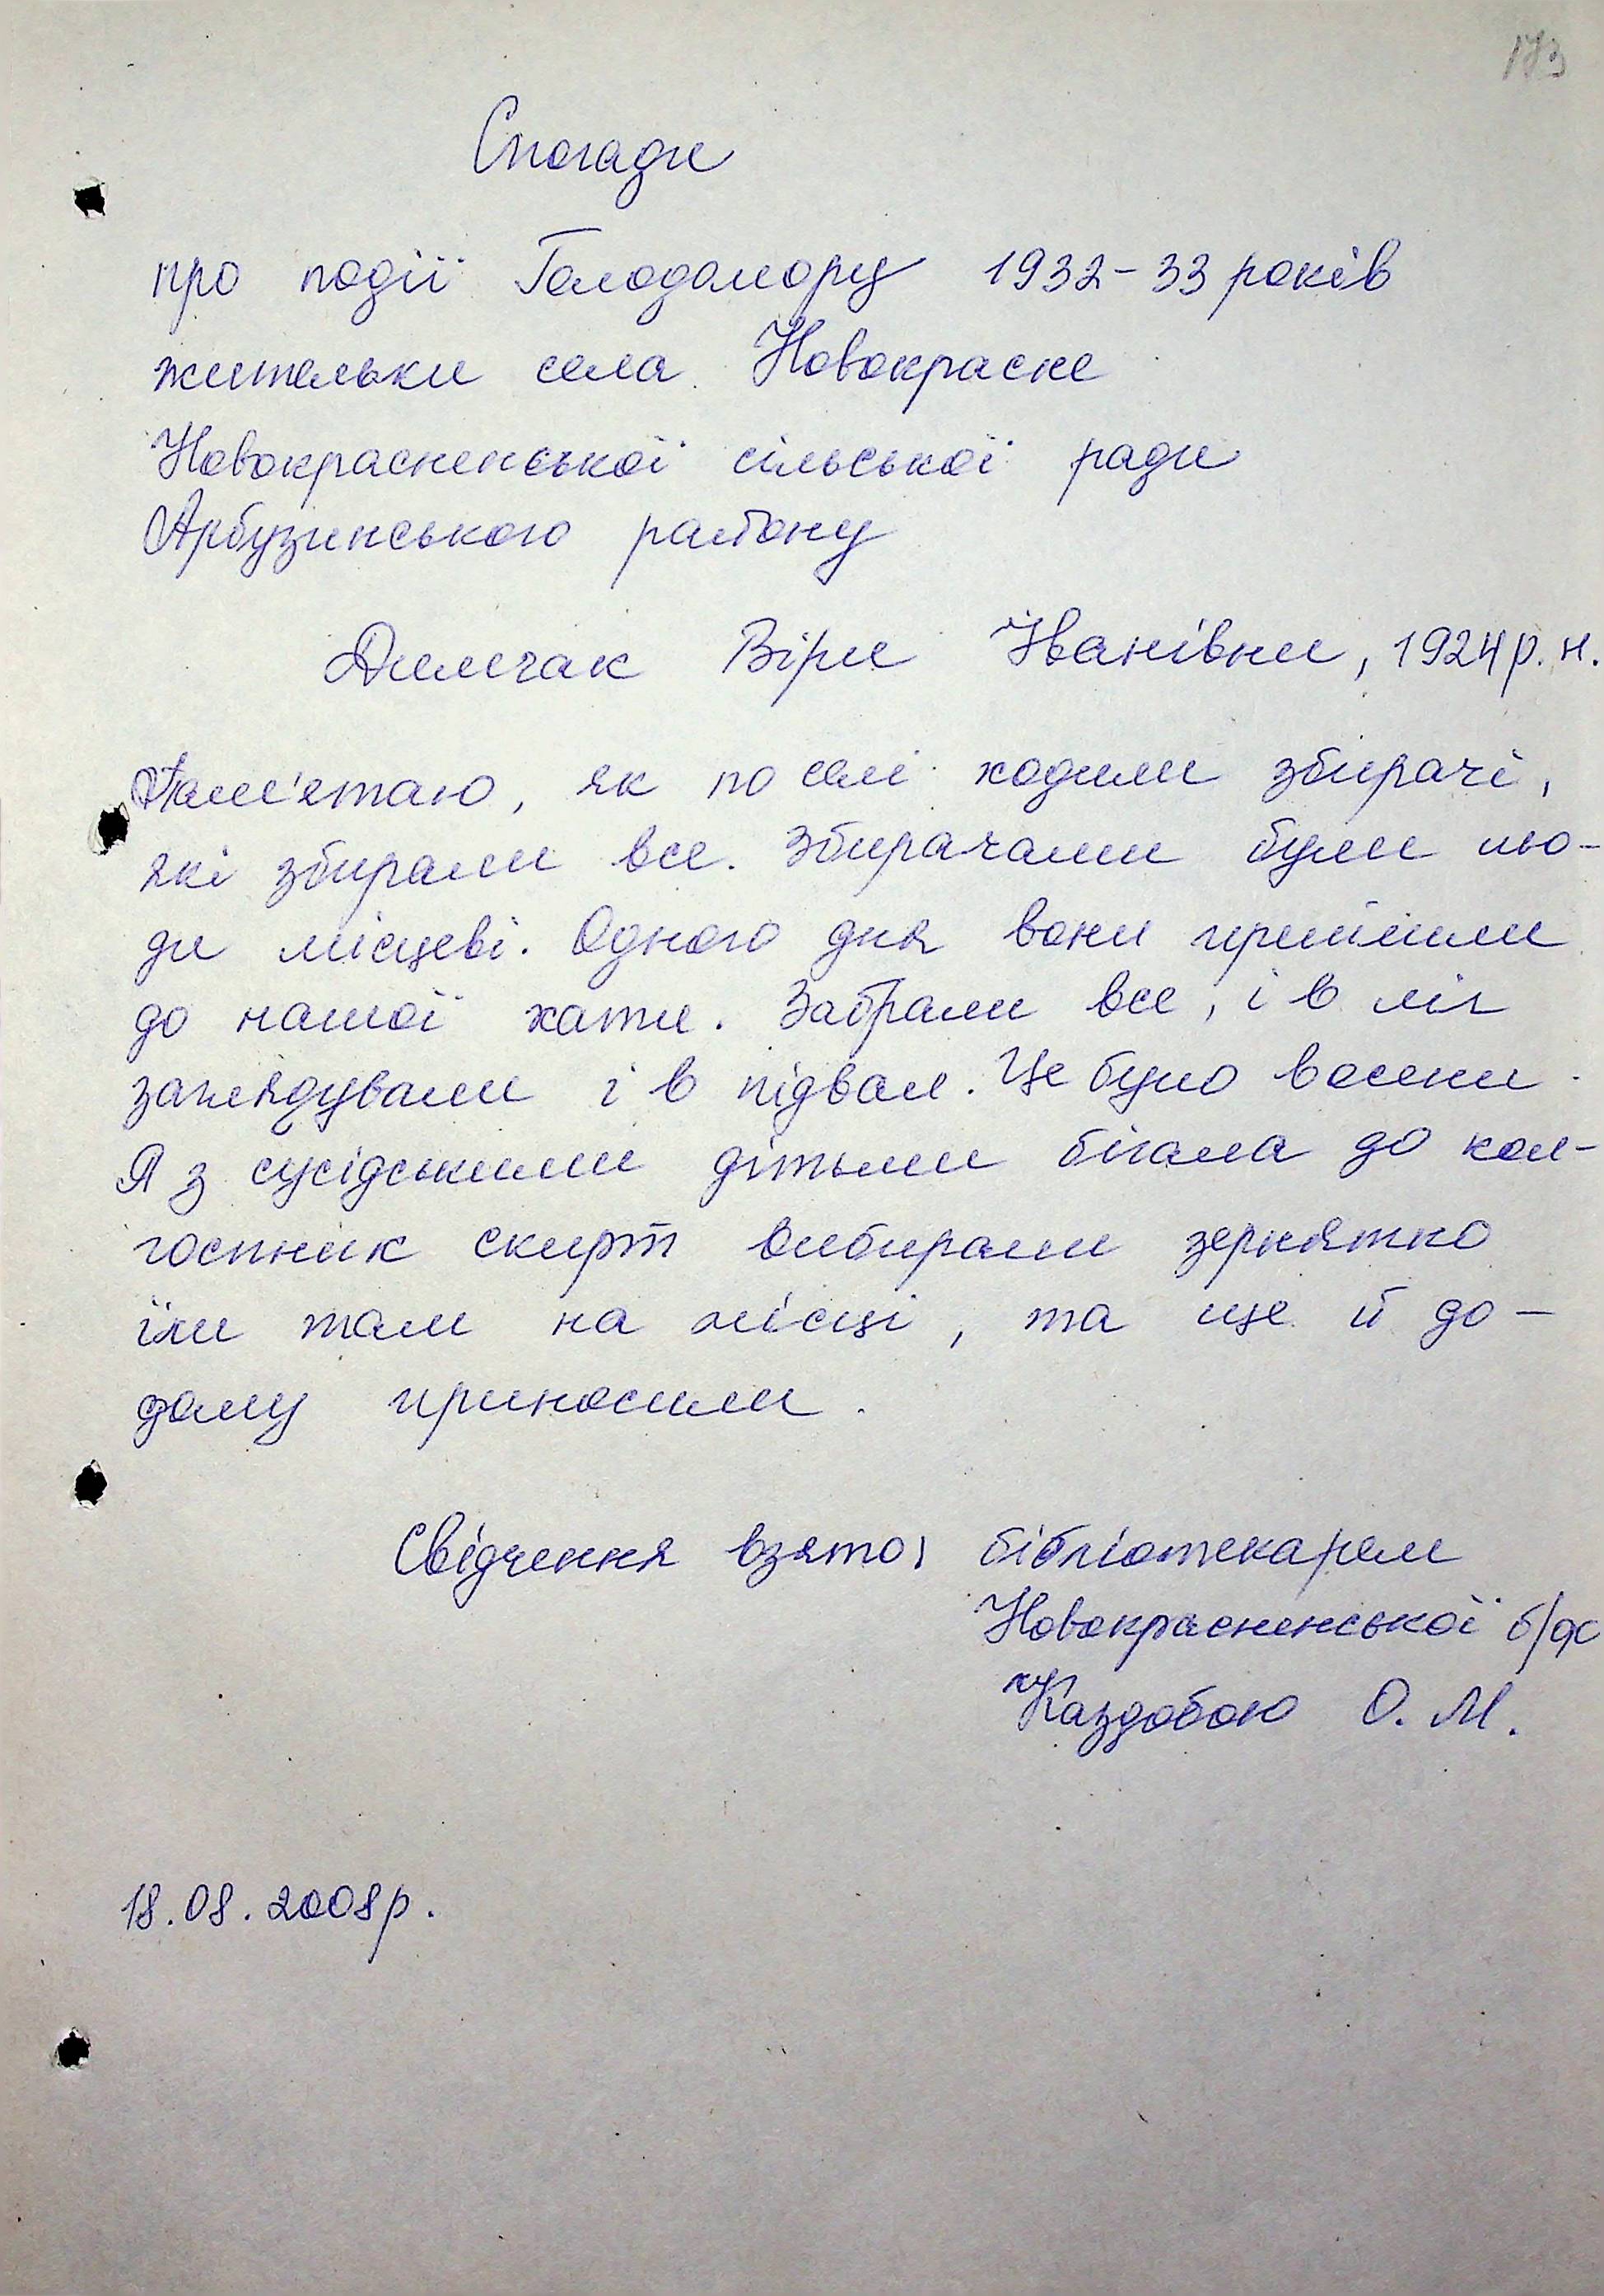 173
Спогади
про події Голодомору 1932-33 років
жительки села Новокраснe
Новокрасненської сільської ради
Арбузинського району
Димчак Віри Іванівни, 1924 р. н.
Пам'ятаю, як по селі ходили збирачі,
які збирали все. Збирачами були лю-
ди місцеві. Одного дня вони прийшли
до нашої хати. Забрали все, і в піч
заглядували і в підвал. Це було восени.
Я з сусідськими дітьми бігала до кол-
госпник скирт вибирали зернятко
їли там на місці, та ще й до-
дому приносили.
Свідчення взято: бібліотекарем
Новокрасненської б/ф
Каздобою О. М.
18.08.2008р.